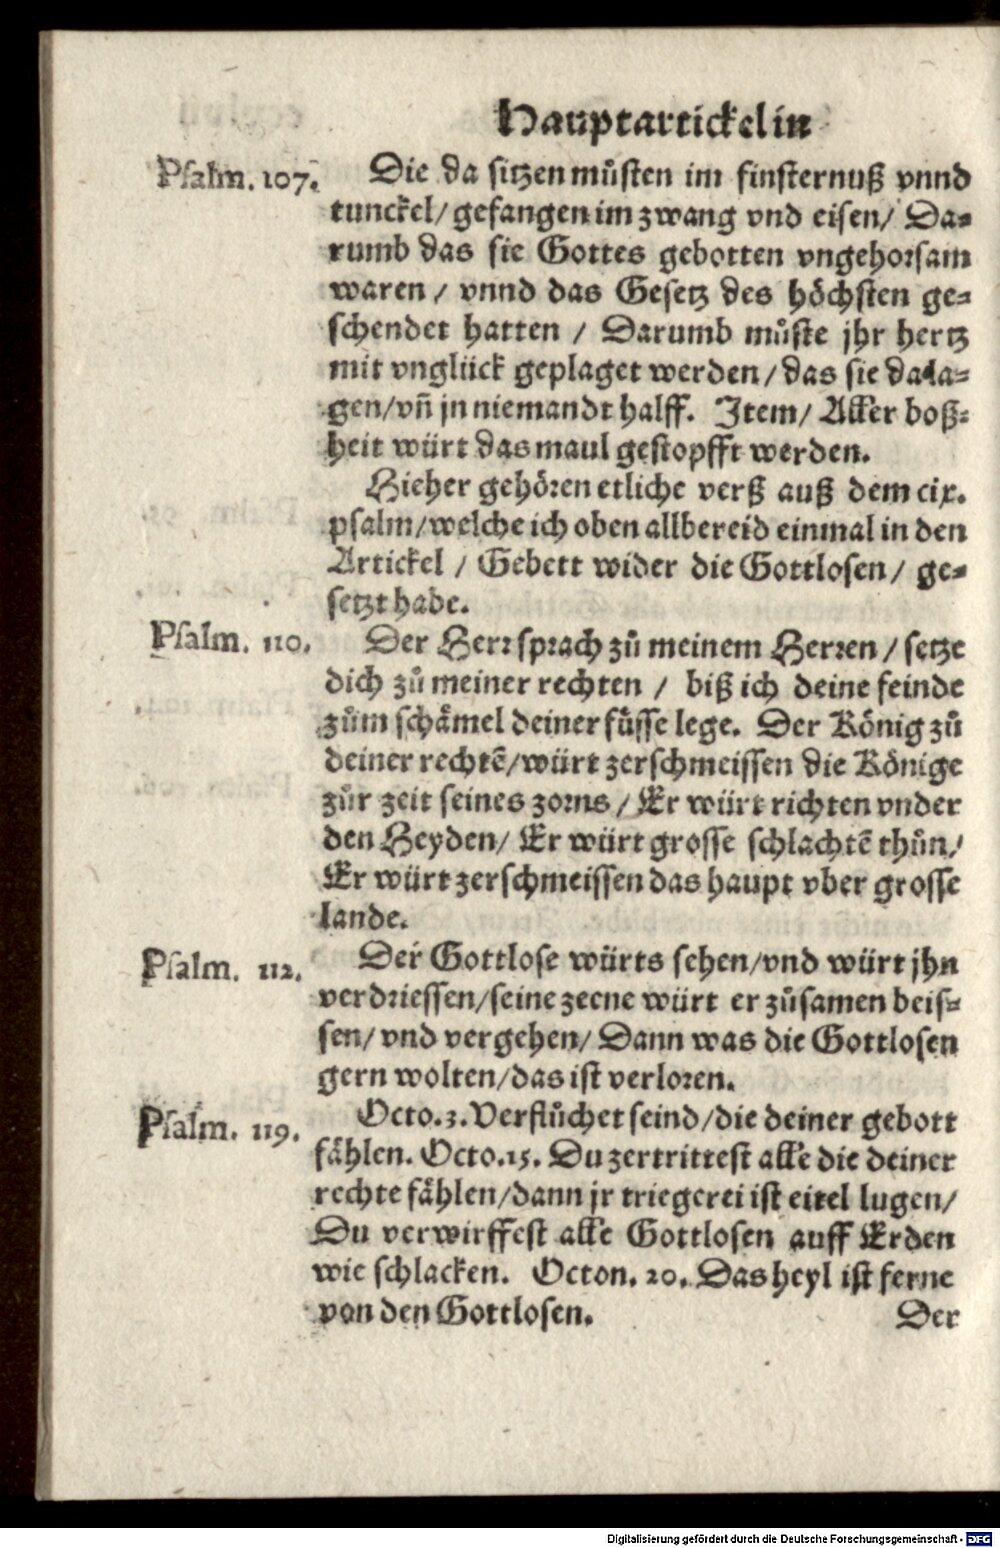 Hauptartickel in
Psalm. 107. Die da sitzen můsten im finsternuß vnnd
tunckel/ gefangen im zwang vnd eisen/ Da-
rumb das sie Gottes gebotten vngehorsam
waren / vnnd das Gesetz des höchsten ge-
schendet hatten / Darumb můste jhr hertz
mit vnglück geplaget werden/ das sie da la-
gen/ vñ jn niemandt halff. Item/ Aller boß-
heit würt das maul gestopfft werden.
Hieher gehören etliche verß auß dem cix.
psalm/ welche ich oben allbereid einmal in den
Artickel / Gebett wider die Gottlosen/ ge-
setzt habe.
Psalm. 110. Der Herr sprach zů meinem Herren / setze
dich zů meiner rechten / biß ich deine feinde
zům schämel deiner fůsse lege. Der König zů
deiner rechtẽ/ würt zerschmeissen die Könige
zůr zeit seines zorns/ Er würt richten vnder
den Heyden/ Er würt grosse schlachtẽ thůn/
Er würt zerschmeissen das haupt vber grosse
lande.
Psalm. 112. Der Gottlose würts sehen/ vnd würt jhn
verdriessen/ seine zeene würt er zůsamen beis-
sen/ vnd vergehen/ Dann was die Gottlosen
gern wolten/ das ist verloren.
Psalm. 119. Octo. 3. Verflůchet seind/ die deiner gebott
fählen. Octo. 15. Du zertrittest alle die deiner
rechte fählen/ dann jr triegerei ist eitel lugen/
Du verwirffest alle Gottlosen auff Erden
wie schlacken. Octon. 20. Das heyl ist ferne
von den Gottlosen. Der
Digitalisierung gefördert durch die Deutsche Forschungsgemeinschaft - DFG